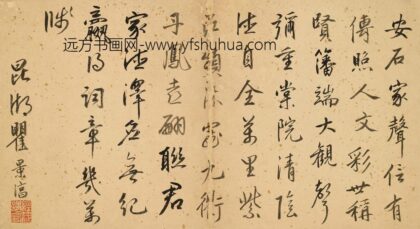 安石家聲信有
傳照人文彩世稱
賢藩端大觀聲
彌重棠院清陰
德自全萬里紫
深寵九
丹鳳走翩聯君
家德澤名無紀
贏得詞章幾萬
牋
昆湖瞿景淳
远方书画网-www.yfshuhua.com